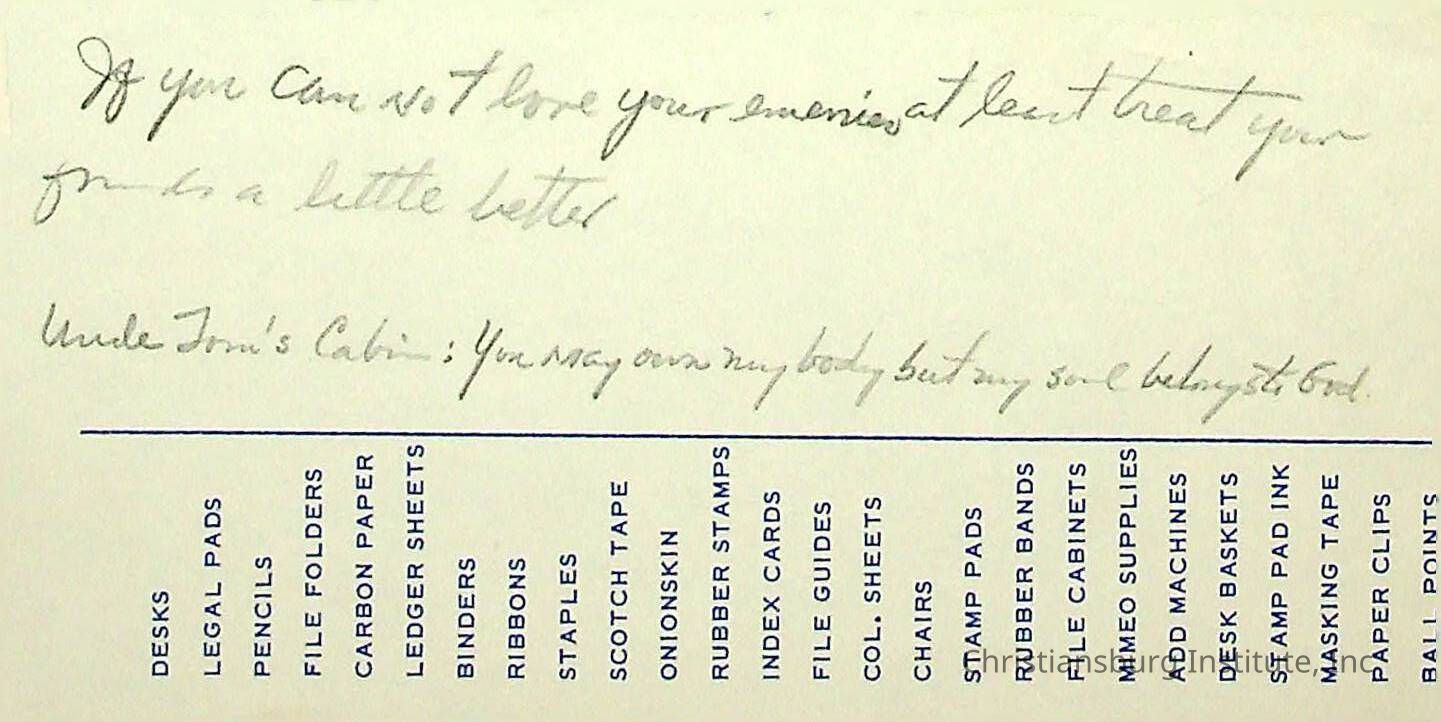 If you can not love your enemies, at least treat your
friends a little better
Uncle Tom's Cabin: You may own my body but my soul belongs to God.
DESKS
LEGAL PADS
PENCILS
FILE FOLDERS
CARBON PAPER
LEDGER SHEETS
BINDERS
RIBBONS
STAPLES
SCOTCH TAPE
ONIONSKIN
RUBBER STAMPS
INDEX CARDS
FILE GUIDES
COL. SHEETS
CHAIRS
STAMP PADS
RUBBER BANDS
FILE CABINETS
MIMEO SUPPLIES
ADD MACHINES
DESK BASKETS
STAMP PAD INK
MASKING TAPE
PAPER CLIPS
BALL POINTS
Christiansburg Institute, Inc.